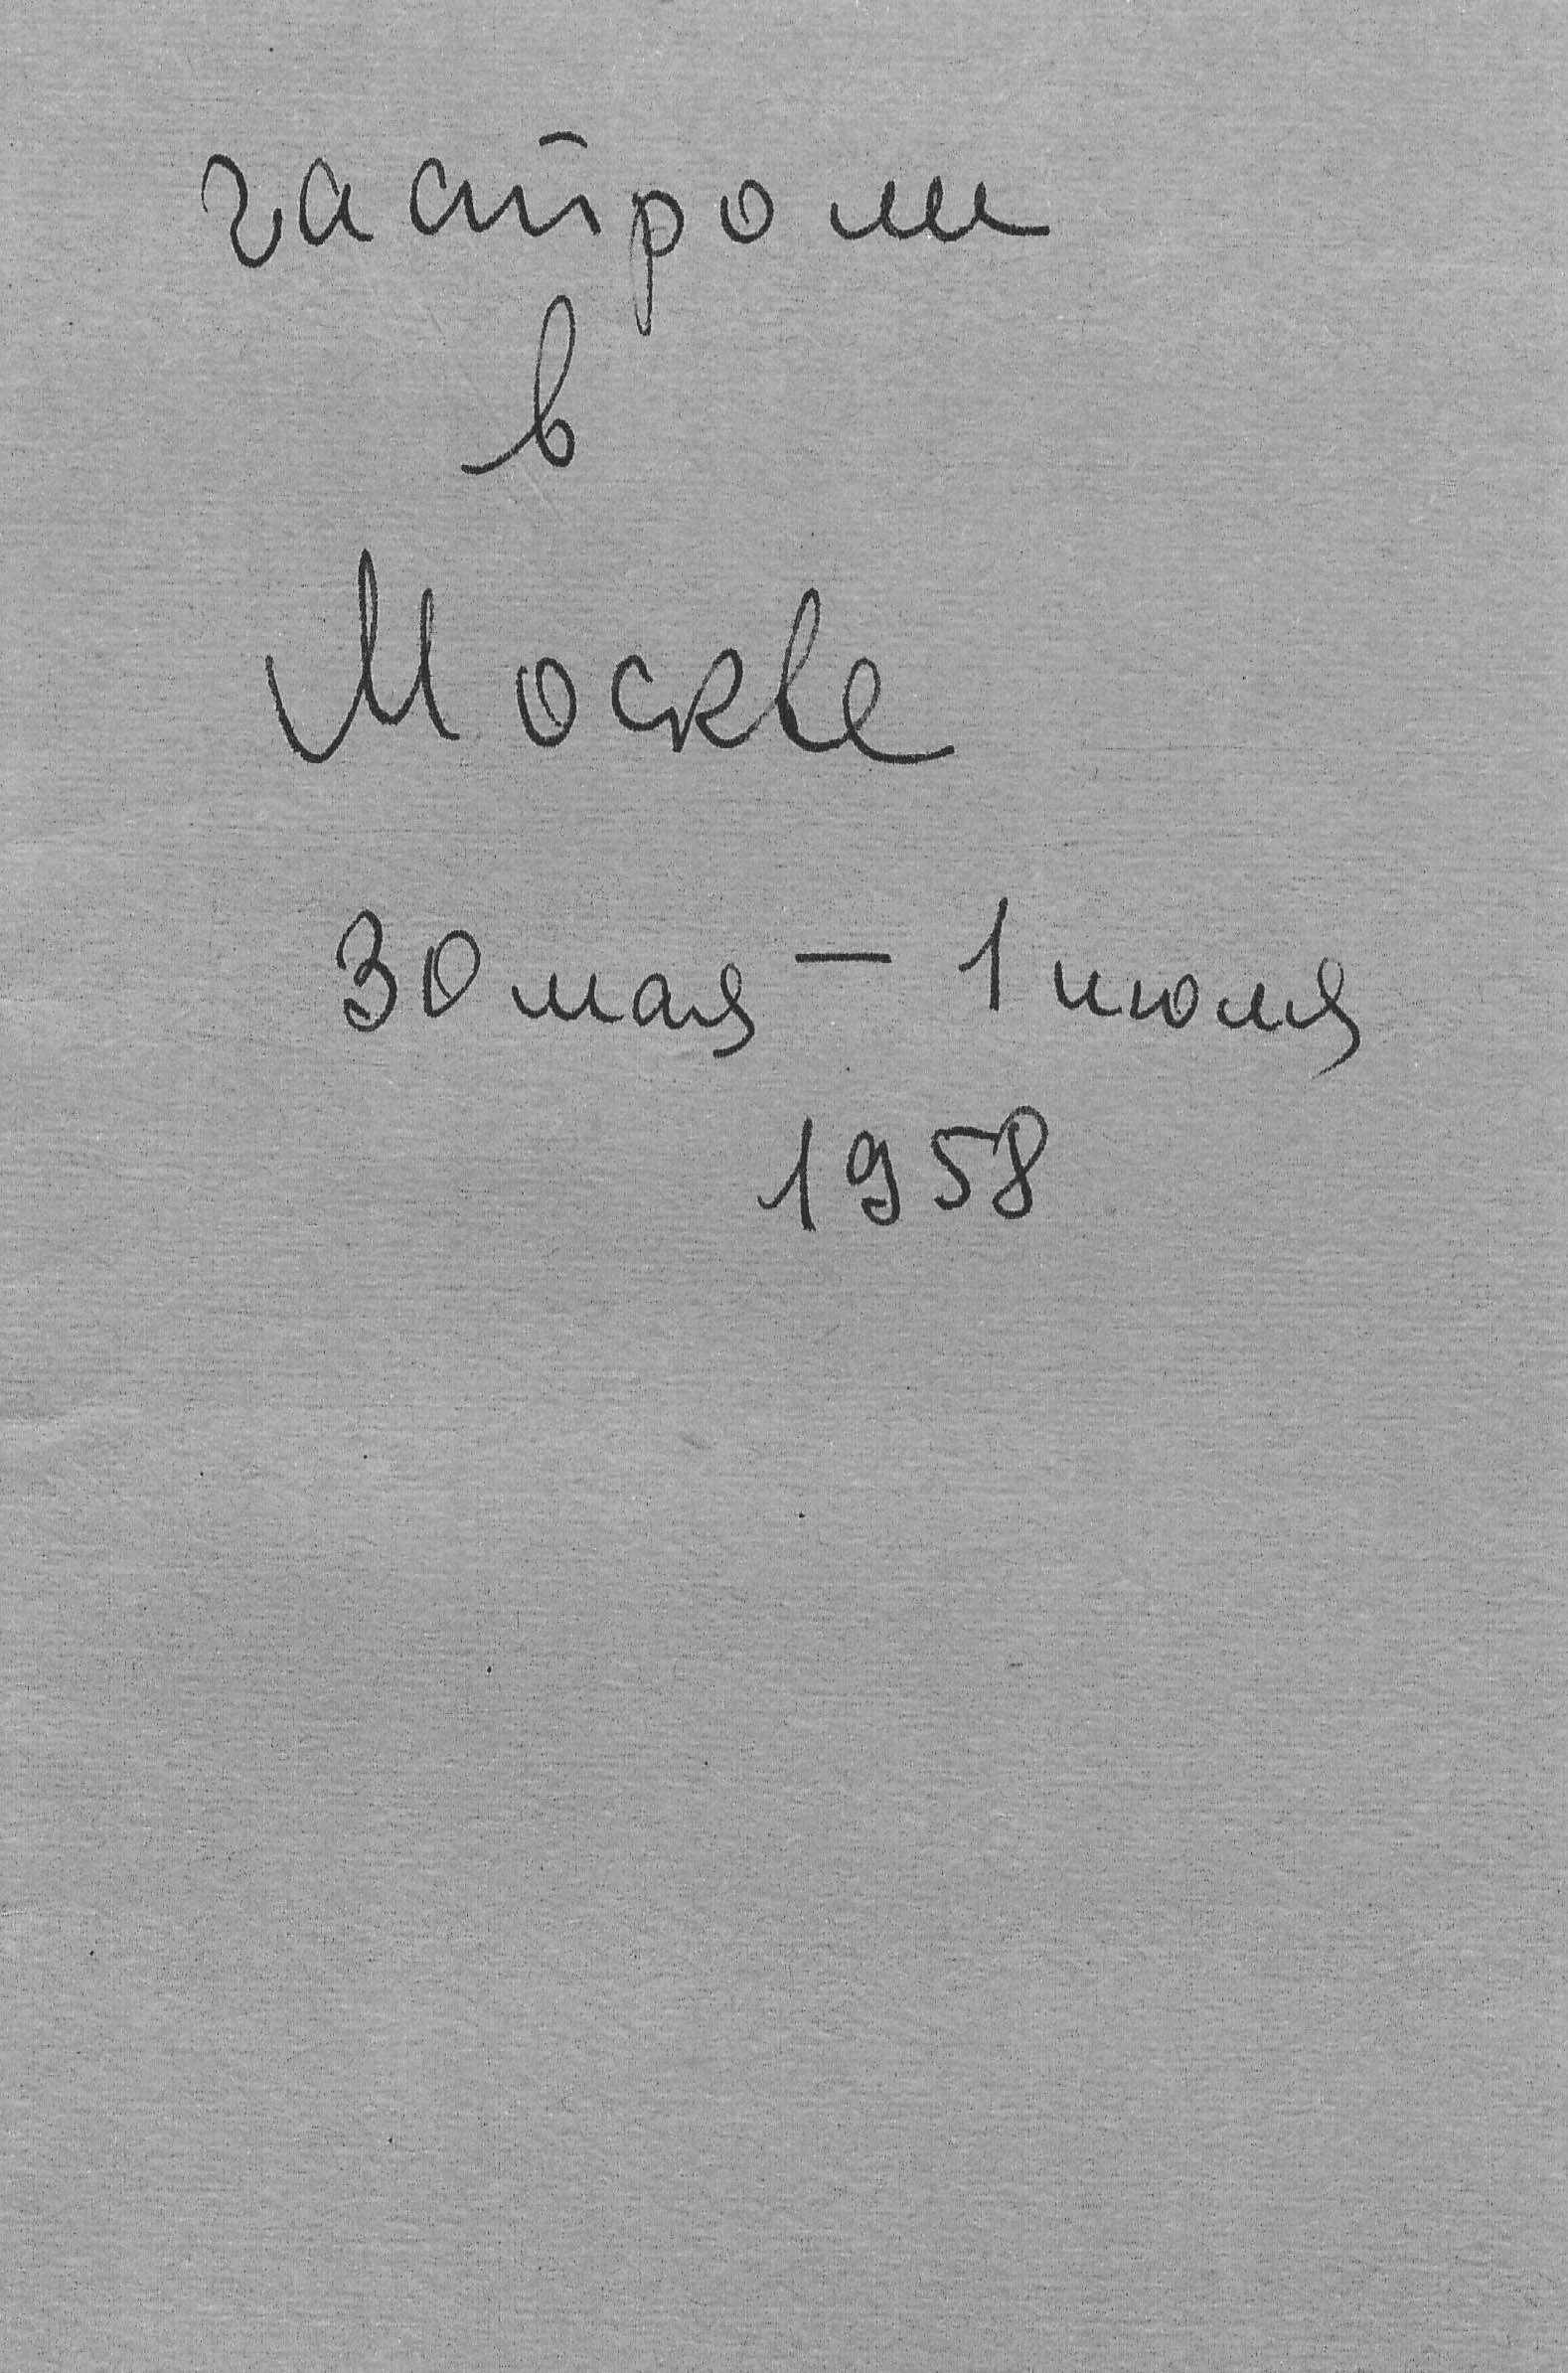 гастроли
в
Москве
30 мая – 1 июля
1958